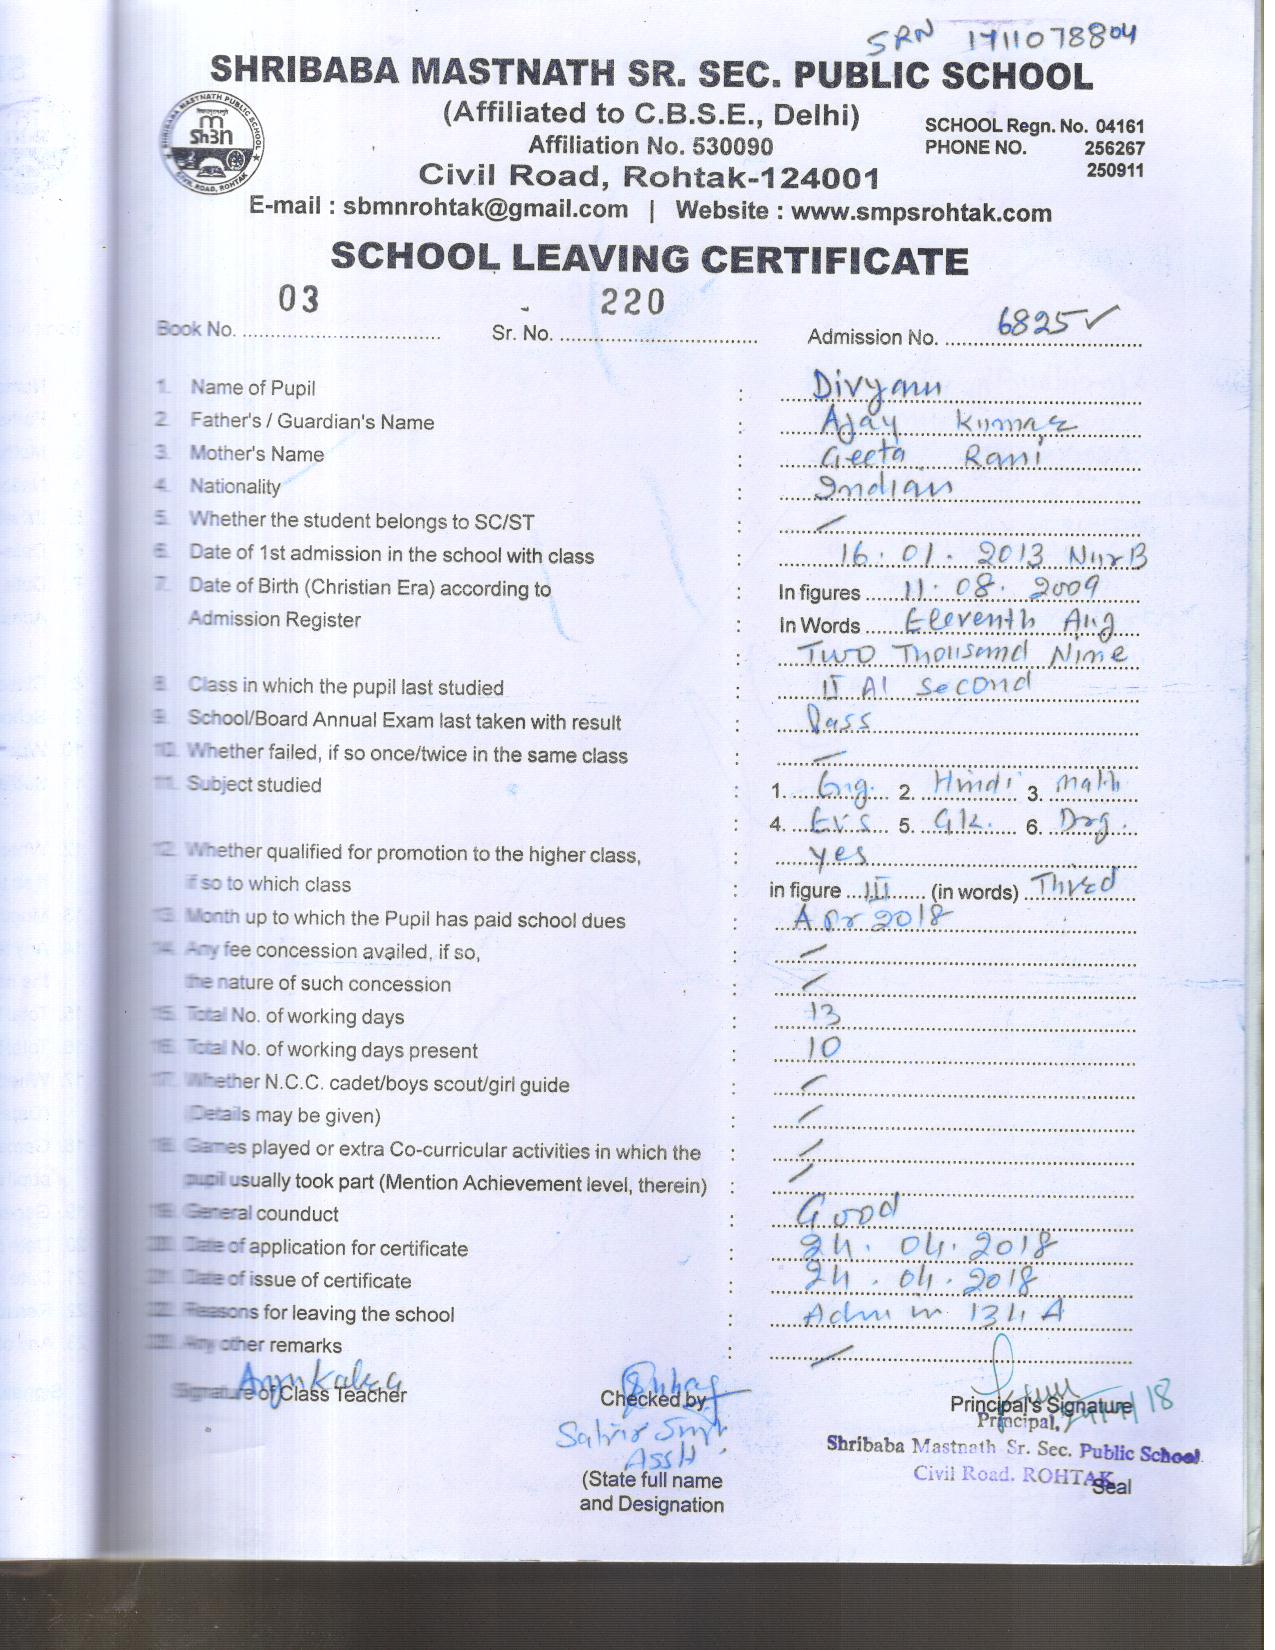 SRN 1711078804
SHRIBABA MASTNATH SR. SEC. PUBLIC SCHOOL
(Affiliated to C.B.S.E., Delhi)
Affiliation No. 530090
SCHOOL Regn. No. 04161
PHONE NO. 256267
250911
Civil Road, Rohtak-124001
E-mail : sbmnrohtak@gmail.com | Website : www.smpsrohtak.com
SCHOOL LEAVING CERTIFICATE
Book No. 03 Sr. No. 220 Admission No. 6825
1. Name of Pupil : Divyann
2. Father's / Guardian's Name : Ajay Kumar
3. Mother's Name : Geeta Rani
4. Nationality : Indian
5. Whether the student belongs to SC/ST : /
6. Date of 1st admission in the school with class : 16.01.2013 Nur B
7. Date of Birth (Christian Era) according to : In figures 11.08.2009
Admission Register : In Words Eleventh Aug
: Two Thousand Nine
8. Class in which the pupil last studied : II A1 Second
9. School/Board Annual Exam last taken with result : Pass
10. Whether failed, if so once/twice in the same class : /
11. Subject studied : 1. Eng. 2. Hindi 3. Math
: 4. Evs 5. Gk. 6. Drg.
12. Whether qualified for promotion to the higher class, : yes
if so to which class : in figure III (in words) Third
13. Month up to which the Pupil has paid school dues : Apr 2018
14. Any fee concession availed, if so, : /
the nature of such concession : /
15. Total No. of working days : 13
16. Total No. of working days present : 10
17. Whether N.C.C. cadet/boys scout/girl guide : /
(Details may be given) : /
18. Games played or extra Co-curricular activities in which the : /
pupil usually took part (Mention Achievement level, therein) : /
19. General counduct : Good
20. Date of application for certificate : 24.04.2018
21. Date of issue of certificate : 24.04.2018
22. Reasons for leaving the school : Adm in 134 A
23. Any other remarks : /
Signature of Class Teacher Checked by Principal's Signature
Principal,
Shribaba Mastnath Sr. Sec. Public School
Civil Road, ROHTAK
Seal
(State full name
and Designation